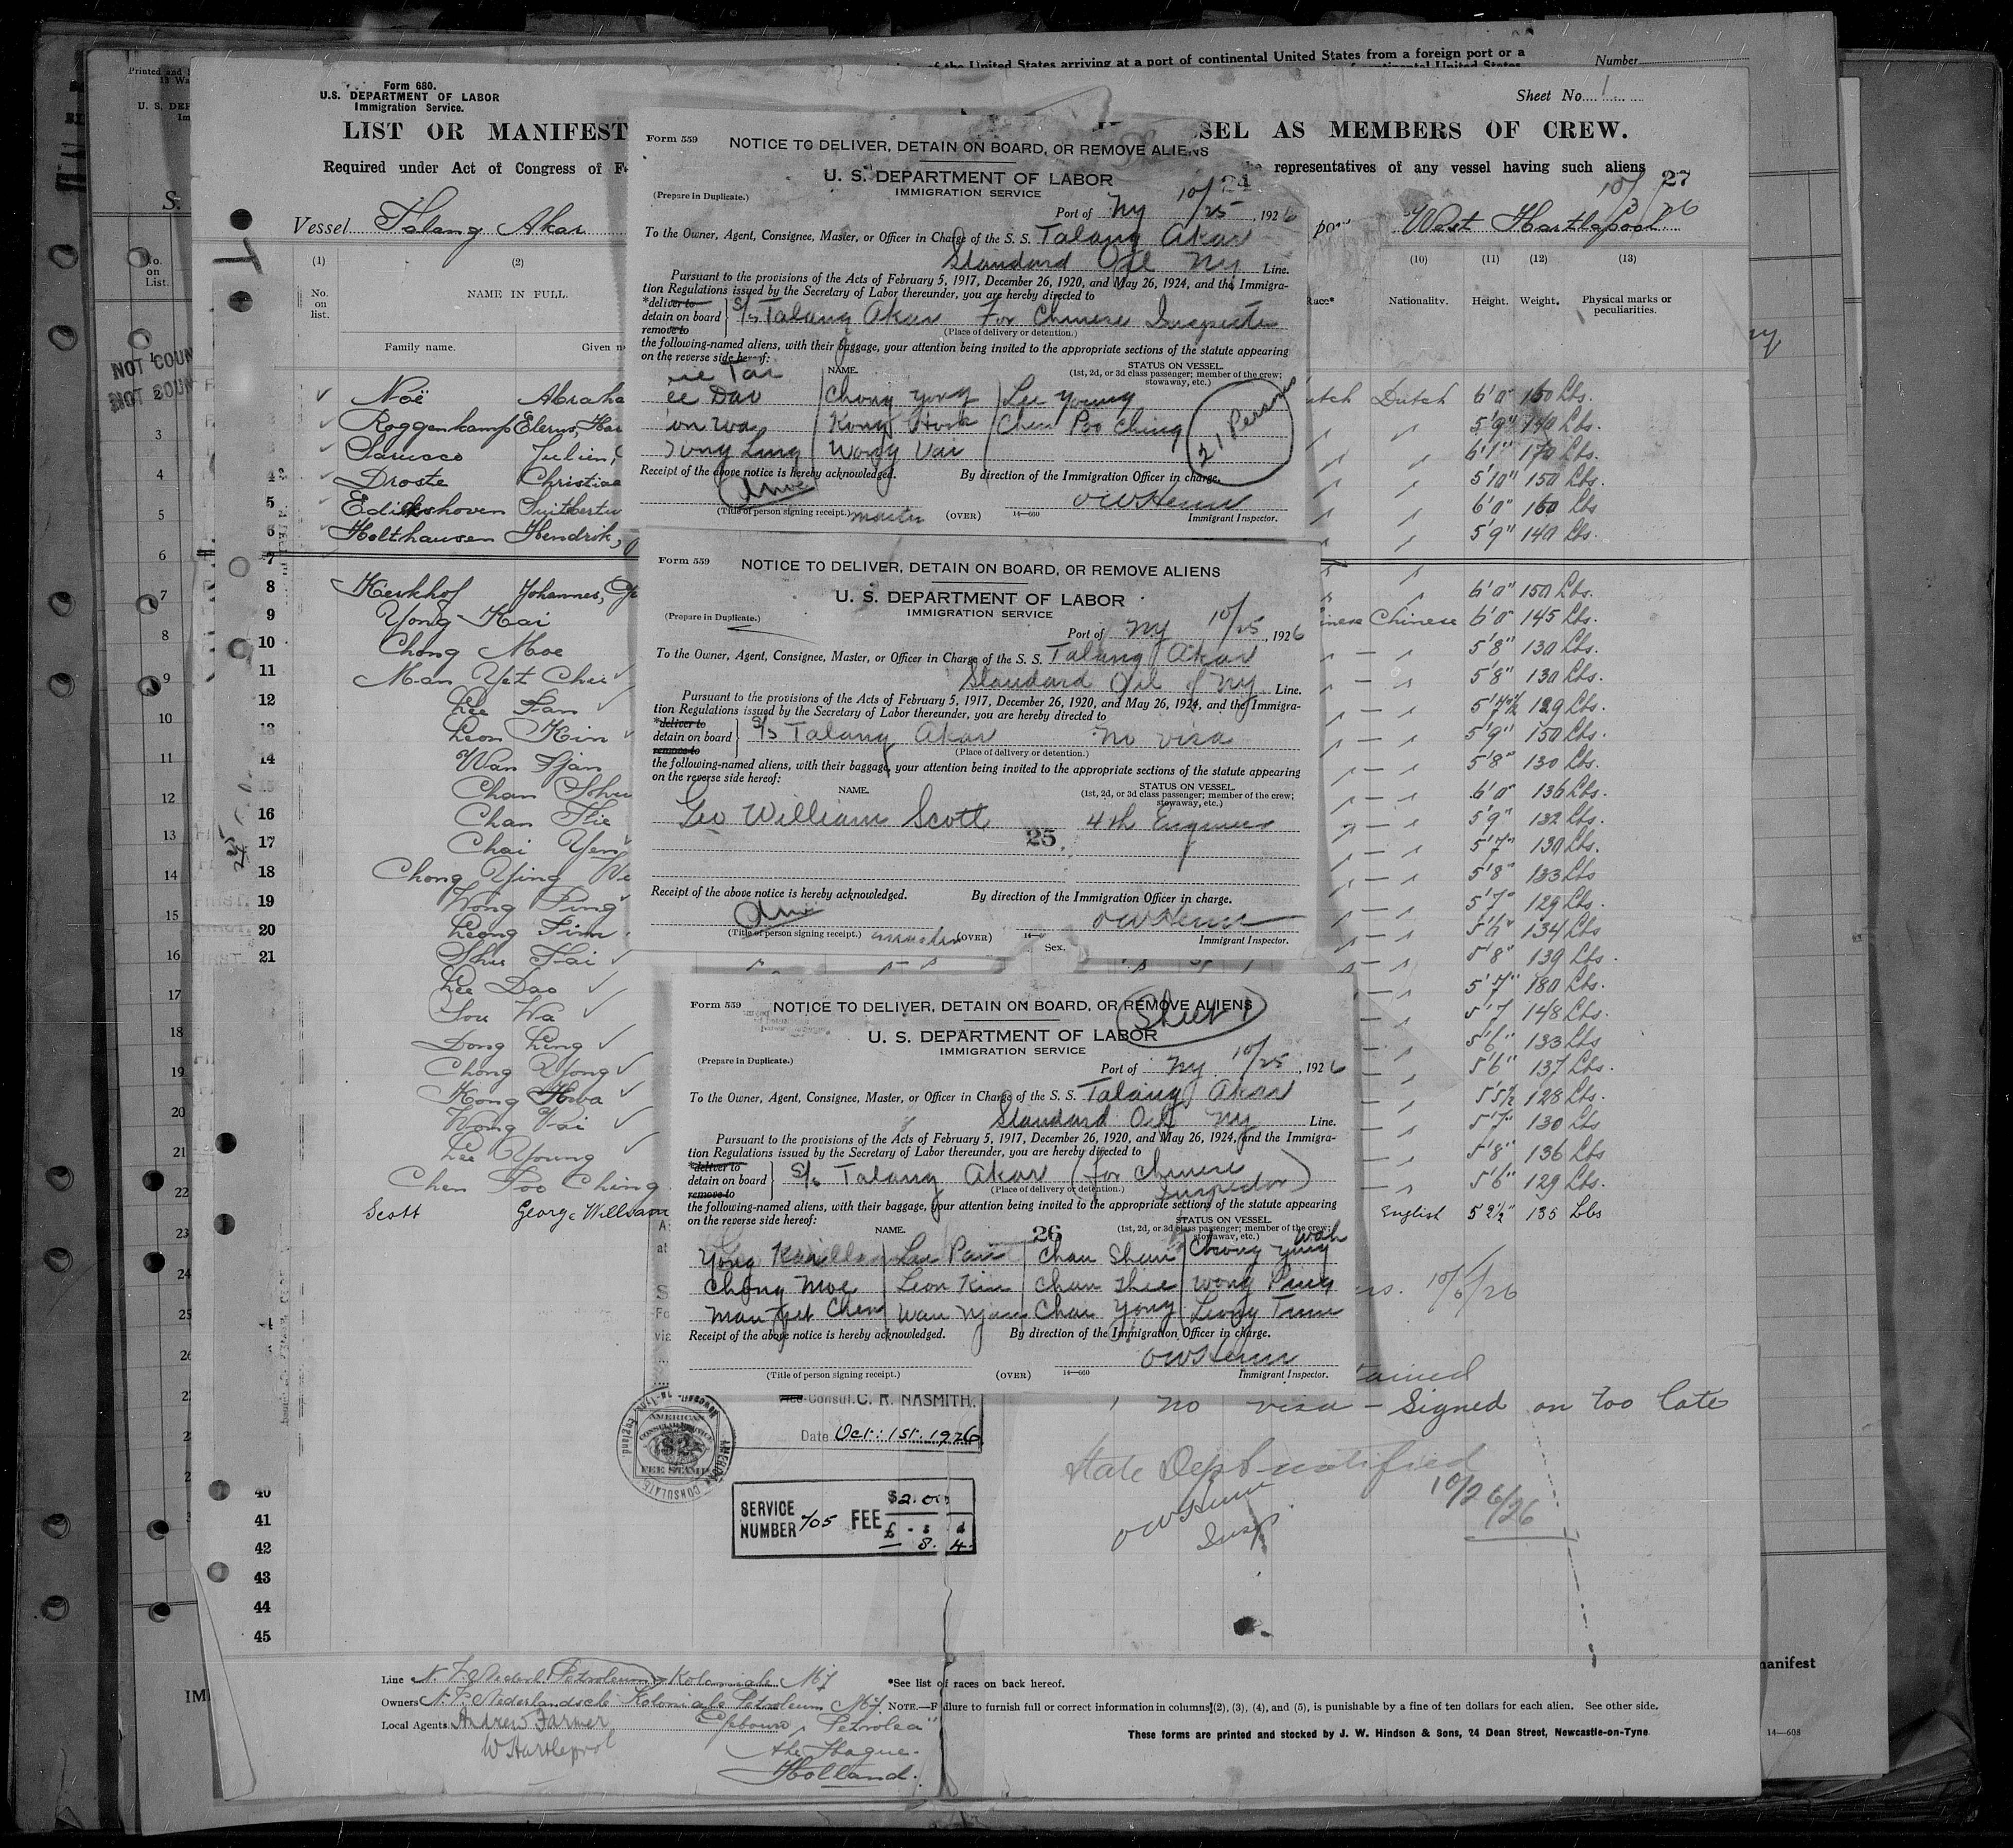 of the United States arriving at a port of continental United States from a foreign port or a
Number
Form 680.
U.S. DEPARTMENT OF LABOR
Immigration Service.
Sheet No. 1
LIST OR MANIFEST
SEL AS MEMBERS OF CREW.
Required under Act of Congress of F
representatives of any vessel having such aliens 27
Vessel Talang Akar
West Hartlepool
10/3/26
(1) (2)
(10) (11) (12) (13)
No. on list.
NAME IN FULL.
Race* Nationality. Height. Weight. Physical marks or peculiarities.
Family name. Given n
Noë Abraha
utch Dutch 6'0" 150 Lbs.
Roggenkamp Elerus, Har
5'9" 140 Lbs.
Samsco Julien,
6'1" 170 Lbs.
Droste Christiaa
5'10" 150 Lbs.
Edickshoven Suitbertu
6'0" 160 Lbs
Holthausen Hendrik,
5'9" 140 Lbs.
Kerkhof Johannes,
6'0" 150 Lbs.
Yong Kai
inese Chinese 6'0" 145 Lbs.
Chong Moe
5'8" 130 Lbs.
Man Yet Chei
5'8" 130 Lbs.
Lee Pan
5'7½ 129 Lbs.
Leon Kin
5'9" 150 Lbs.
Wan Njan
5'8" 130 Lbs.
Chan Shu
6'0" 136 Lbs.
Chan Thie
5'9" 132 Lbs.
Chai Yen
5'7" 130 Lbs.
Chong Ying We
5'8" 133 Lbs
Wong Ping
5'7" 129 Lbs.
Leong Tim
5'6" 134 Lbs
Shu Tai
5'8" 139 Lbs.
Lee Dao
5'7" 180 Lbs.
Sou Wa
5'7 148 Lbs.
Dong Ling
5'6" 133 Lbs
Chong Yong
5'6" 137 Lbs.
Kong Hwa
5'5½ 128 Lbs.
Wong Vai
5'7" 130 Lbs
Lee Young
5'8" 136 Lbs
Chen Poo Ching
5'6" 129 Lbs.
Scott George William
English 5 2½" 135 Lbs
Form 559
NOTICE TO DELIVER, DETAIN ON BOARD, OR REMOVE ALIENS
U. S. DEPARTMENT OF LABOR
IMMIGRATION SERVICE 24
(Prepare in Duplicate.)
Port of NY 10/25, 1926
To the Owner, Agent, Consignee, Master, or Officer in Charge of the S. S. Talang Akar
Standard Oil NY Line.
Pursuant to the provisions of the Acts of February 5, 1917, December 26, 1920, and May 26, 1924, and the Immigra-
tion Regulations issued by the Secretary of Labor thereunder, you are hereby directed to
*deliver to
detain on board S/s Talang Akar For Chinese Inspector
remove to
(Place of delivery or detention.)
the following-named aliens, with their baggage, your attention being invited to the appropriate sections of the statute appearing
on the reverse side hereof:
NAME. STATUS ON VESSEL
(1st, 2d, or 3d class passenger; member of the crew; stowaway, etc.)
Tai
ee Dao Chong Yong Lee Young
on Wa Kong Hook Chen Poo Ching
ong Ling Wong Vai
21 Persons
Receipt of the above notice is hereby acknowledged. By direction of the Immigration Officer in charge.
OWHeun
(Title of person signing receipt.) master (OVER) 14—660 Immigrant Inspector.
Form 559
NOTICE TO DELIVER, DETAIN ON BOARD, OR REMOVE ALIENS
U. S. DEPARTMENT OF LABOR
IMMIGRATION SERVICE
(Prepare in Duplicate.)
Port of NY 10/25, 1926
To the Owner, Agent, Consignee, Master, or Officer in Charge of the S. S. Talang Akar
Standard Oil of NY Line.
Pursuant to the provisions of the Acts of February 5, 1917, December 26, 1920, and May 26, 1924, and the Immigra-
tion Regulations issued by the Secretary of Labor thereunder, you are hereby directed to
*deliver to
detain on board S/s Talang Akar no visa
remove to
(Place of delivery or detention.)
the following-named aliens, with their baggage, your attention being invited to the appropriate sections of the statute appearing
on the reverse side hereof:
NAME. STATUS ON VESSEL
(1st, 2d, or 3d class passenger; member of the crew; stowaway, etc.)
Geo William Scott 25 4th Engineer
Receipt of the above notice is hereby acknowledged. By direction of the Immigration Officer in charge.
OWHeun
(Title of person signing receipt.) master (OVER) Immigrant Inspector.
Sex.
Form 559
NOTICE TO DELIVER, DETAIN ON BOARD, OR REMOVE ALIENS
Sheet 1
U. S. DEPARTMENT OF LABOR
IMMIGRATION SERVICE
(Prepare in Duplicate.)
Port of NY 10/25, 1926
To the Owner, Agent, Consignee, Master, or Officer in Charge of the S. S. Talang Akar
Standard Oil NY Line.
Pursuant to the provisions of the Acts of February 5, 1917, December 26, 1920, and May 26, 1924, and the Immigra-
tion Regulations issued by the Secretary of Labor thereunder, you are hereby directed to
*deliver to
detain on board S/s Talang Akar (for Chinese Inspector)
remove to
(Place of delivery or detention.)
the following-named aliens, with their baggage, your attention being invited to the appropriate sections of the statute appearing
on the reverse side hereof:
NAME. 26 STATUS ON VESSEL
(1st, 2d, or 3d class passenger; member of the crew; stowaway, etc.)
Yong Kai Lee Pan Chan Shun Chong Ying Wah
Chong Moe Leon Kin Chan Thie Wong Ping
Man Yet Chen Wan Njan Chan Yong Leong Timm
Receipt of the above notice is hereby acknowledged. By direction of the Immigration Officer in charge.
OWHeun
(Title of person signing receipt.) (OVER) 14—660 Immigrant Inspector.
10/6/26
tained
no visa - Signed on too late
State Dept notified
10/26/26
OWHeun
Insp.
Vice Consul. C. R. NASMITH.
Date Oct: 1st. 1926
AMERICAN
FEE STAMP
SERVICE NUMBER 705 FEE $2.00
£ - s d
8. 4.
Line N.V. Nederl. Petroleum Koloniale Mij
*See list of races on back hereof.
Owners N.V. Nederlandsche Koloniale Petroleum Mij.
NOTE.—Failure to furnish full or correct information in columns (2), (3), (4), and (5), is punishable by a fine of ten dollars for each alien. See other side.
Local Agents Andrew Farmer
W Hartlepool
Gebouw "Petrolea"
the Hague.
Holland.
These forms are printed and stocked by J. W. Hindson & Sons, 24 Dean Street, Newcastle-on-Tyne
14—608
anifest